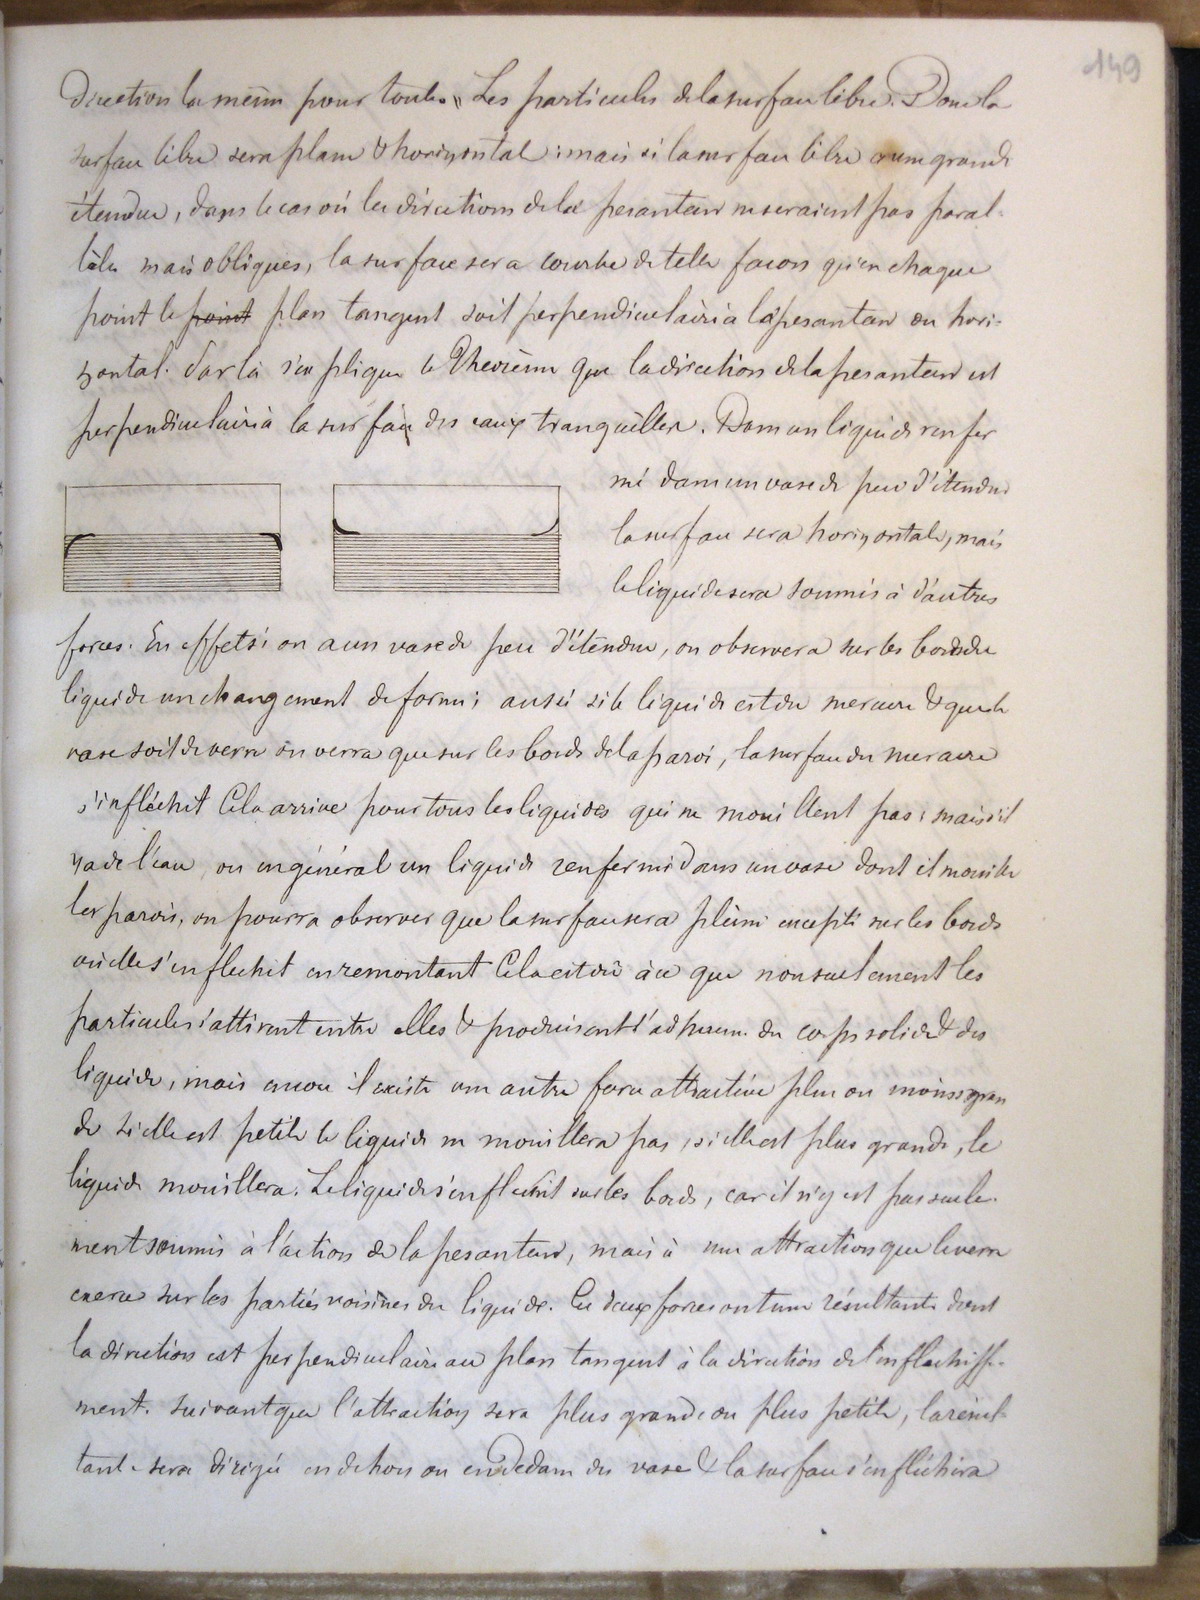 149
direction la même pour toutes les particules de la surface libre. Donc la
surface libre sera plane & horizontale : mais si la surface libre a une grande
étendue, dans le cas où les directions de la pesanteur ne seraient pas paral-
lèles mais obliques, la surface sera courbe de telle facon qu'en chaque
point le point plan tangent soit perpendiculaire à la pesanteur ou hori-
zontal. Par là s'explique le Théorème que la direction de la pesanteur est
perpendiculaire à la surface des eaux tranquilles. Dans un liquide renfer
mé dans un vase de peu d'étendue
la surface sera horizontale, mais
le liquide sera soumis à d'autres
forces. En effet si on a un vase de peu d'étendue, on observera sur les bords du
liquide un changement de forme ; aussi si le liquide est du mercure & que le
vase soit de verre on verra que sur les bords de la paroi, la surface du mercure
s'infléchit Cela arrive pour tous les liquides qui ne mouillent pas ; mais s'il
y a de l'eau ou en général un liquide renfermé dans un vase dont il mouille
les parois, on pourra observer que la surface sera plane excepté sur les bords
où elle s'infléchit en remontant Cela est dû à ce que non seulement les
particules s'attirent entre elles & produisent l'adhérence du corps solide & des
liquide, mais encore il existe une autre force attractive plus ou moins gran
de si elle est petite le liquide ne mouillera pas, si elle est plus grande, le
liquide mouillera. Le liquide s'infléchit sur les bords, car il n'y est pas seule-
ment soumis à l'action de la pesanteur, mais à une attraction que le verre
exerce sur les parties voisines du liquide. Ces deux forces ont une résultante dont
la direction est perpendiculaire au plan tangent à la direction de l'inflechisse-
ment. Suivant que l'attraction sera plus grande ou plus petite, la résul-
tante sera dirigée en dehors ou en dedans du vase & la surface s'infléchira